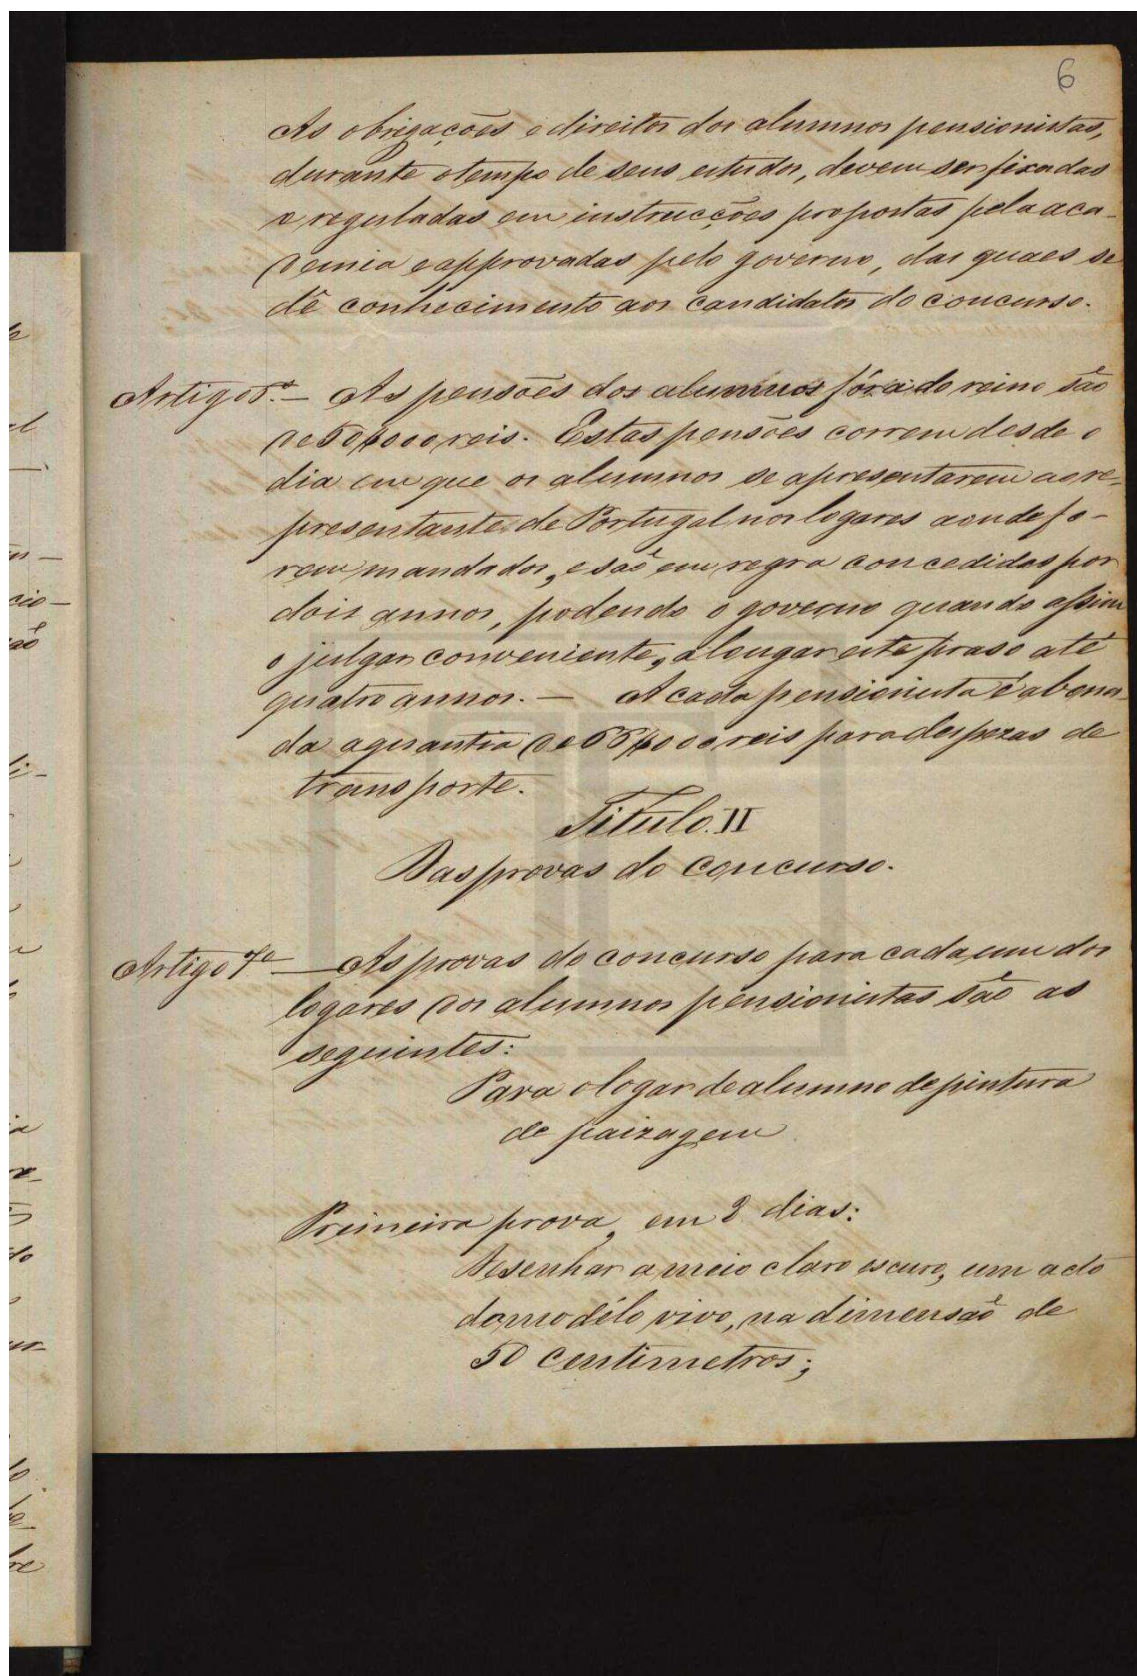 6
As obrigações e direitos dos alumnos pensionistas,
durante o tempo de seus estudos, devem ser fixadas
e reguladas em instrucções propostas pela aca-
demia e approvadas pelo governo, das quaes se
dê conhecimento aos candidatos do concurso.
Artigo — As pensões dos alumnos fóra do reino são
de 50$000 reis. Estas pensões correm desde o
dia em que os alumnos se apresentarem ao re-
presentante de Portugal nos logares aonde fo-
rem mandados, e são em regra concedidas por
dois annos, podendo o governo quando assim
o julgar conveniente, alongar este praso até
quatro annos. — A cada pensionista é abona-
da a quantia de reis para despezas de
transporte.
Titulo. II
Das provas do concurso.
Artigo 7º — As provas do concurso para cada um dos
logares dos alumnos pensionistas são as
seguintes:
Para o logar de alumno de pintura
de paizagem
Primeira prova, em 2 dias:
Desenhar a meio claro escuro, um acto
do modêlo vivo, na dimensão de
50 centimetros;